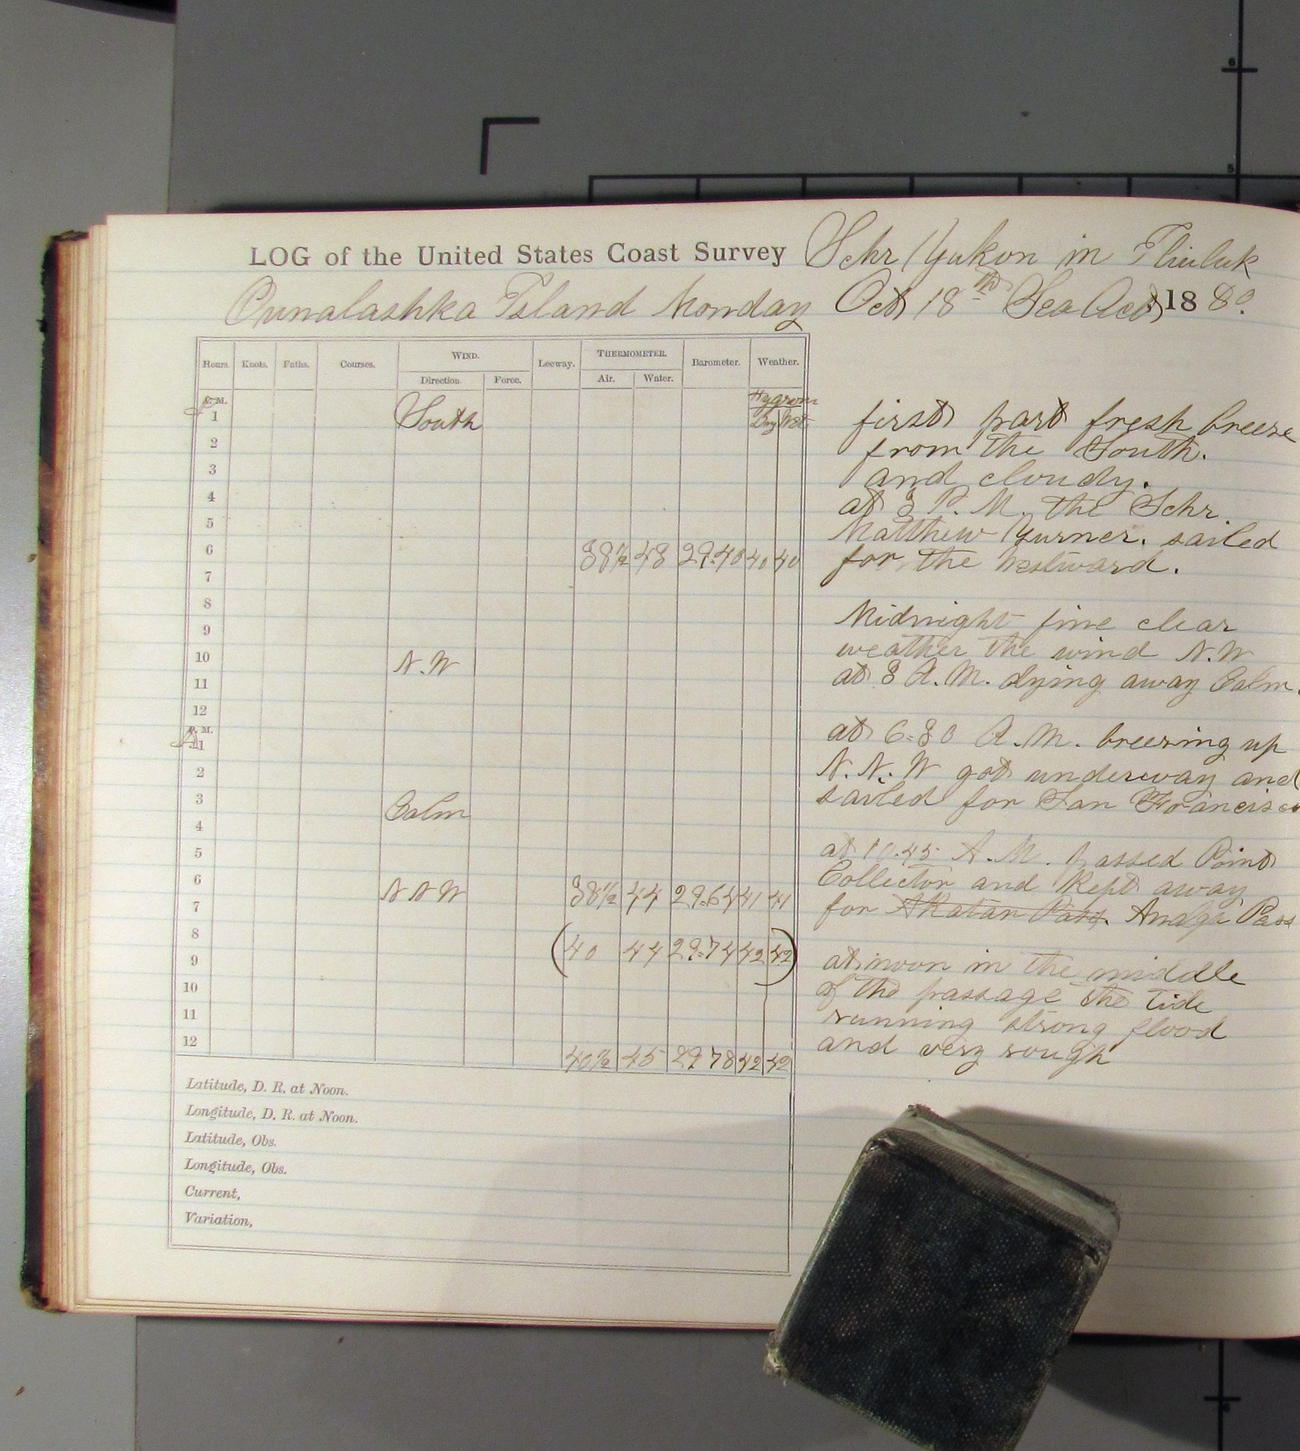 LOG of the United States Coast Survey Schr Yukon in Iliuliuk
Ounalashka Island Monday Oct 18th Sea Acct 1880.
Hours. Knots. Faths. Courses. WIND. Leeway. THERMOMETER. Barometer. Weather.
Direction. Force. Air. Water.
Hygrom
P.M.
1 South Dry Wet
2
3
4
5
6 38½ 48 29.40 40 40
7
8
9
10 N.W
11
12
A.M.
1
2
3 Calm
4
5
6 N N W 38½ 44 29.64 41 41
7
8 (40 44 29.74 42 42)
9
10
11
12 40½ 45 29 78 42 42
Latitude, D. R. at Noon.
Longitude, D. R. at Noon.
Latitude, Obs.
Longitude, Obs.
Current,
Variation,
first part fresh breeze
from the South.
and cloudy.
at 3 P.M. the Schr
Matthew Turner. sailed
for the Westward.
Midnight fine clear
weather the wind N.W
at 3 A.M. dying away Calm.
at 6-30 A.M. breezing up
N.N.W got underway and
sailed for San Francisco
at 10.45 A.M. passed Point
Collector and Kept away
for Akatan Pass. Amalga Pass
at noon in the middle
of the passage the tide
running strong flood
and very rough